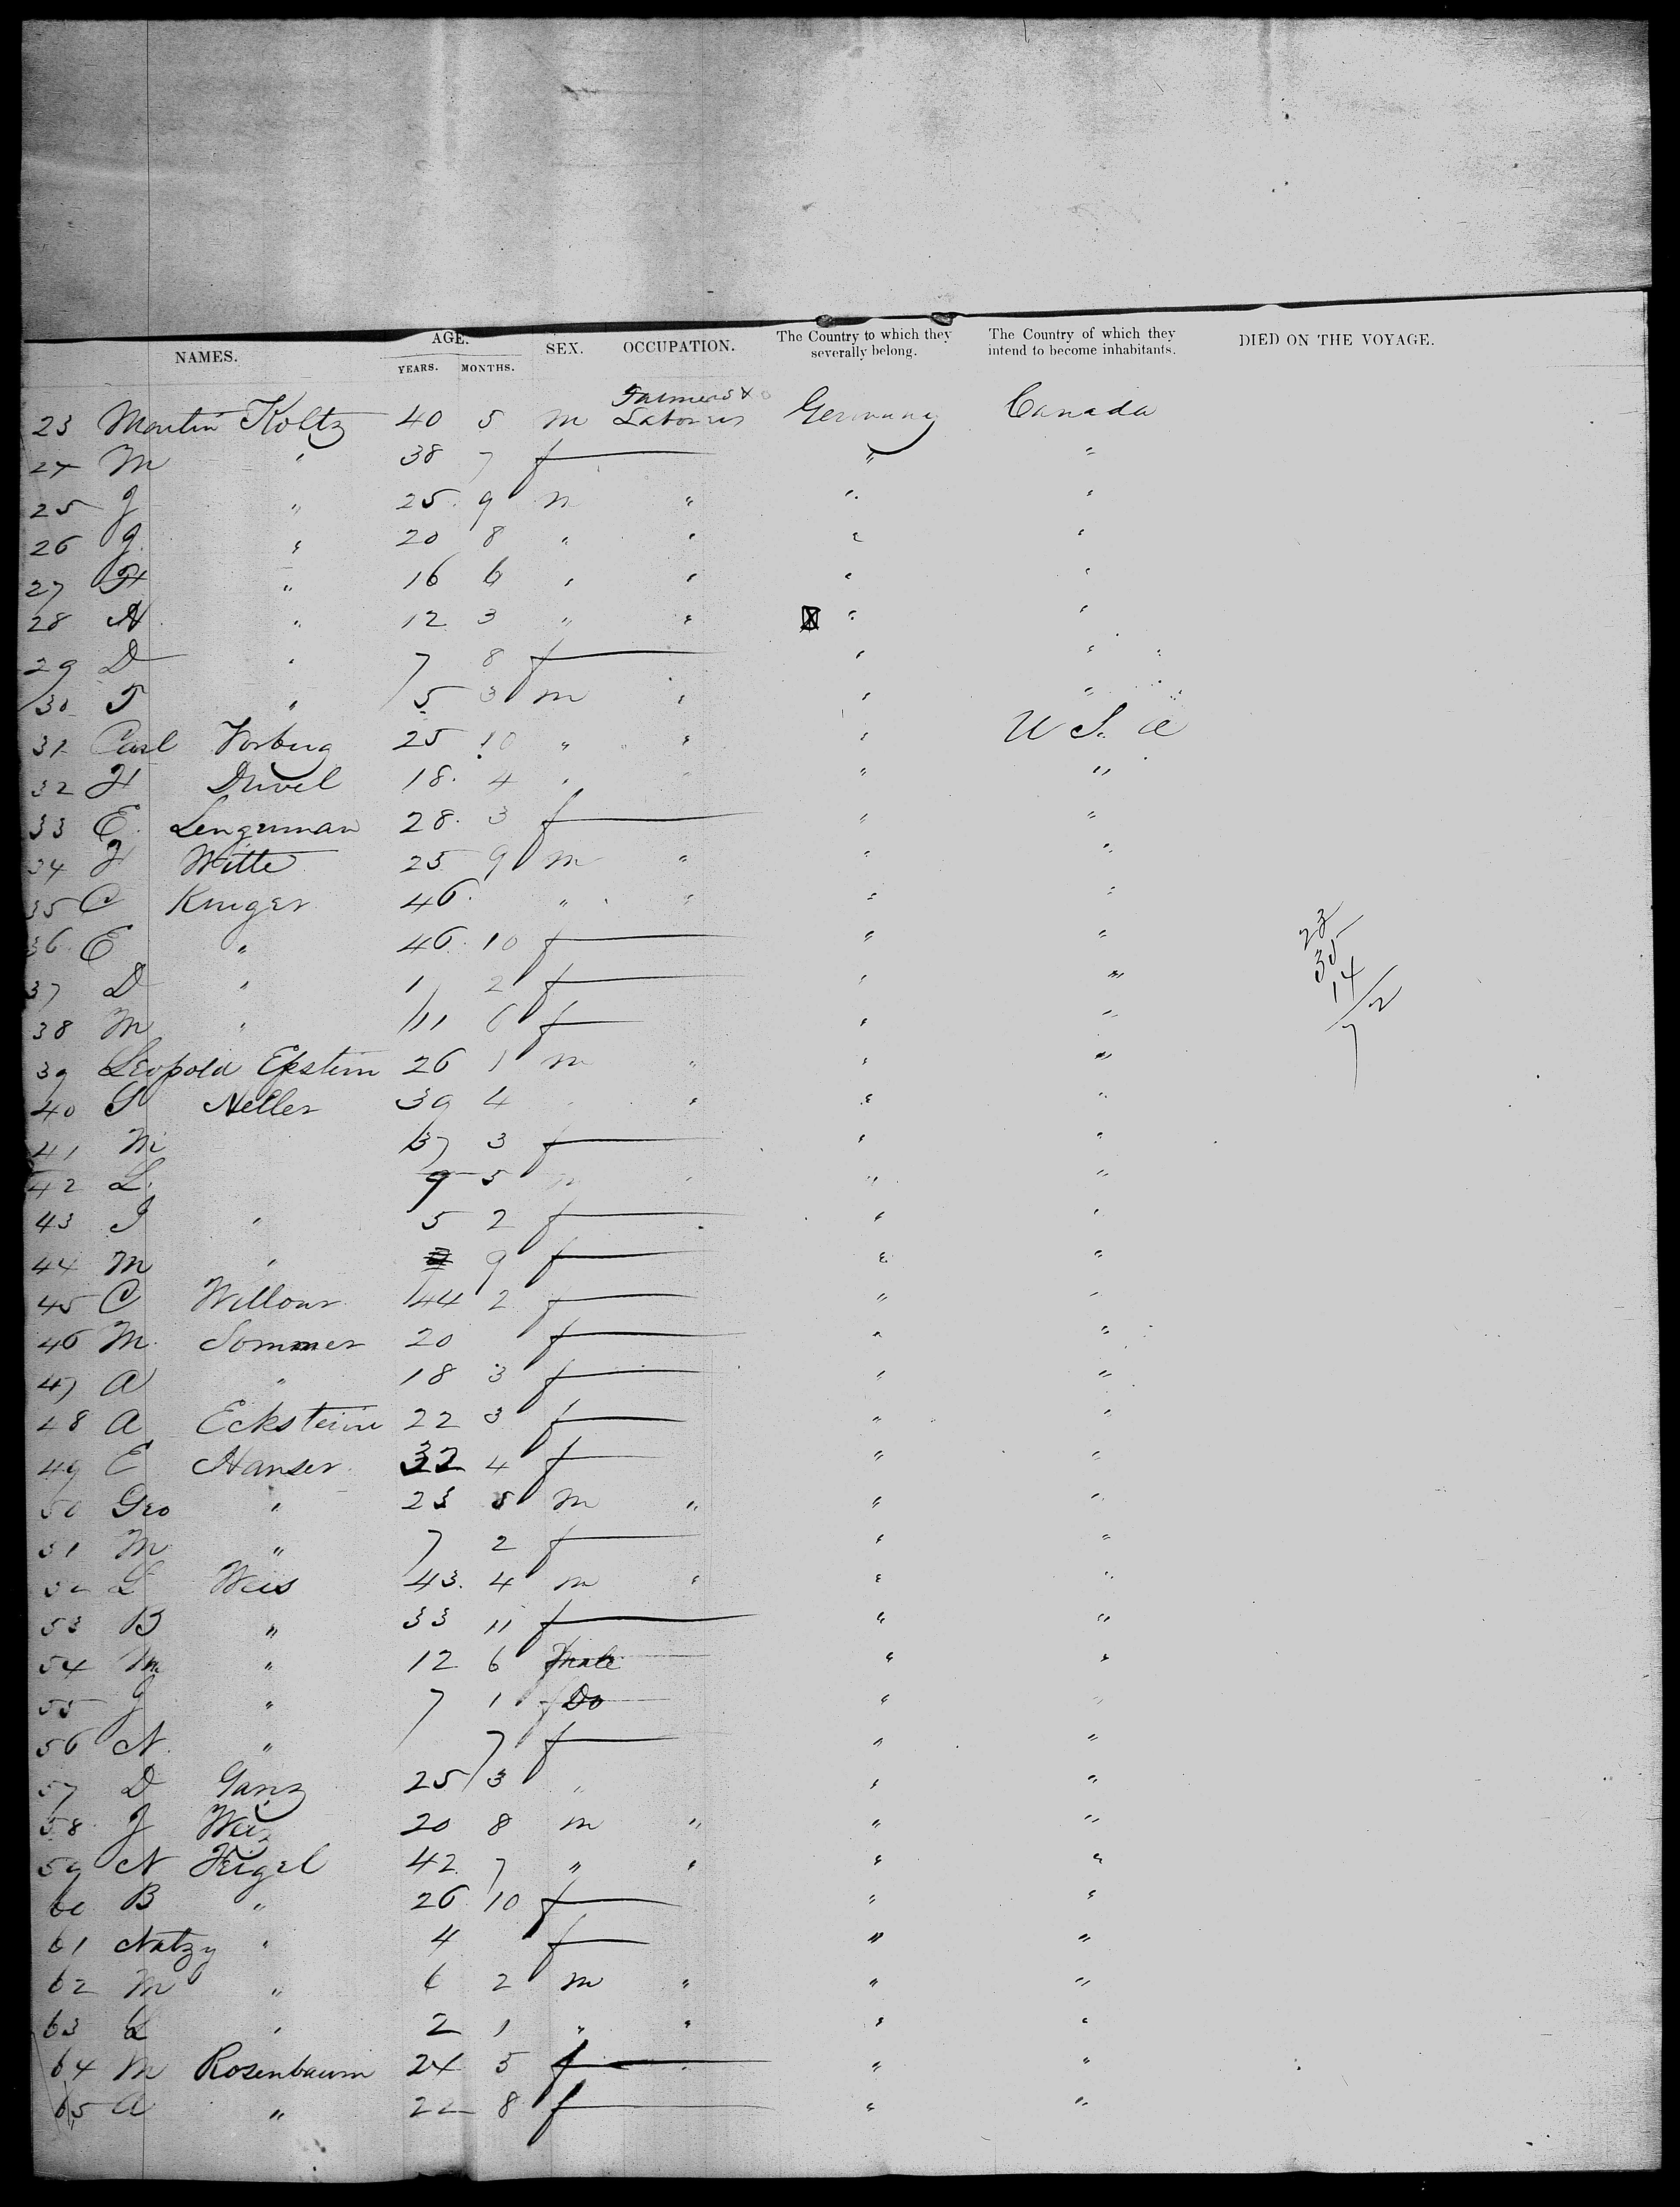 NAMES. AGE. YEARS. MONTHS. SEX. OCCUPATION. The Country to which they severally belong. The Country of which they intend to become inhabitants. DIED ON THE VOYAGE.
Farmers &
23 Martin Koltz 40 5 m Laborers Germany Canada
24 M " 38 7 f " "
25 J " 25 9 m " " "
26 J " 20 8 " " " "
27 H " 16 6 " " " "
28 A " 12 3 " " " "
29 D " 7 8 f " "
30 T " 5 3 m " " "
31 Carl Vorberg 25 10 " " " U S. a
32 H Duvel 18 4 " " " "
33 E Lengerman 28 3 f " "
34 H Witte 25 9 m " " "
35 C Kruger 46 " " " "
36 E " 46 10 f " "
37 D " 1 2 f " "
38 M " 11 6 f " "
39 Leopold Epstein 26 1 m " " "
40 S Neller 39 4 " " "
41 M 37 3 f " "
42 L 9 5 m " " "
43 J " 5 2 f " "
44 M " 9 f " "
45 C Willour 44 2 f " "
46 M Sommer 20 f " "
47 A " 18 3 f " "
48 A Eckstein 22 3 f " "
49 E Hanser 32 4 f " "
50 Geo " 23 5 m " " "
51 M " 7 2 f " "
52 L Weis 43 4 m " " "
53 B " 33 11 f " "
54 M " 12 6 Male " "
55 J " 7 1 Do " "
56 N " 7 f " "
57 D Ganz 25 3 " " "
58 J Weiz 20 8 m " " "
59 N Feigel 42 7 " " " "
60 B " 26 10 f " "
61 Natzy " 4 f " "
62 M " 6 2 m " " "
63 L " 2 1 " " " "
64 M Rosenbaum 24 5 f " "
65 A " 22 8 f " "
23
35
14
72